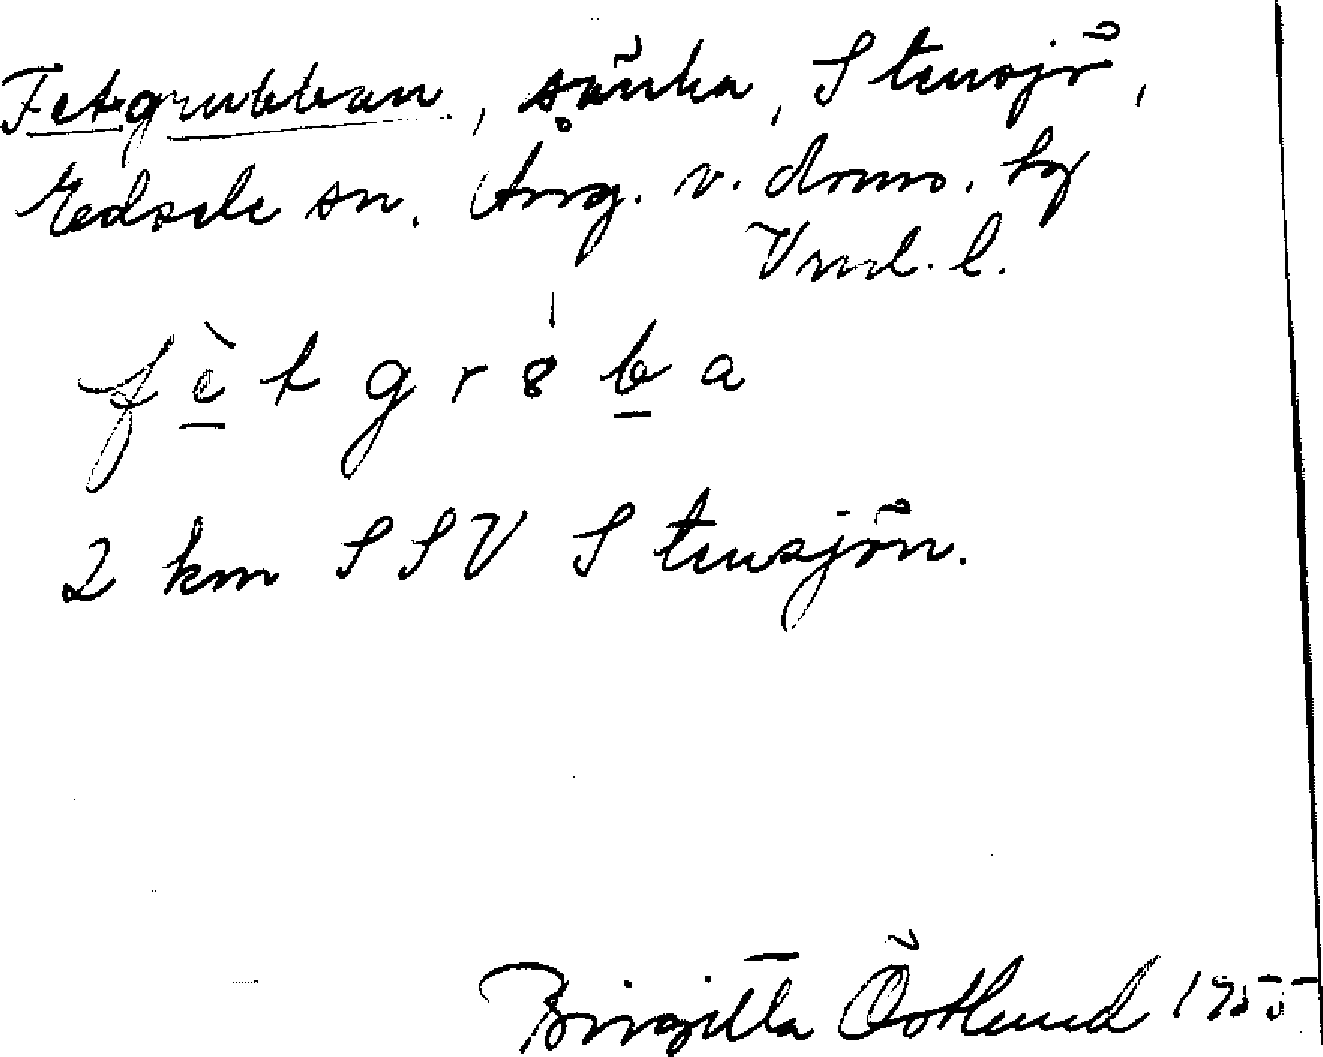 Fetgrubban, sänka, Stensjö,
Edsele sn. Ång. v. doms. hg
Vnl. l.
fètgr8ba
2 km SSV Stensjön.
Birgitta Östlund 1955